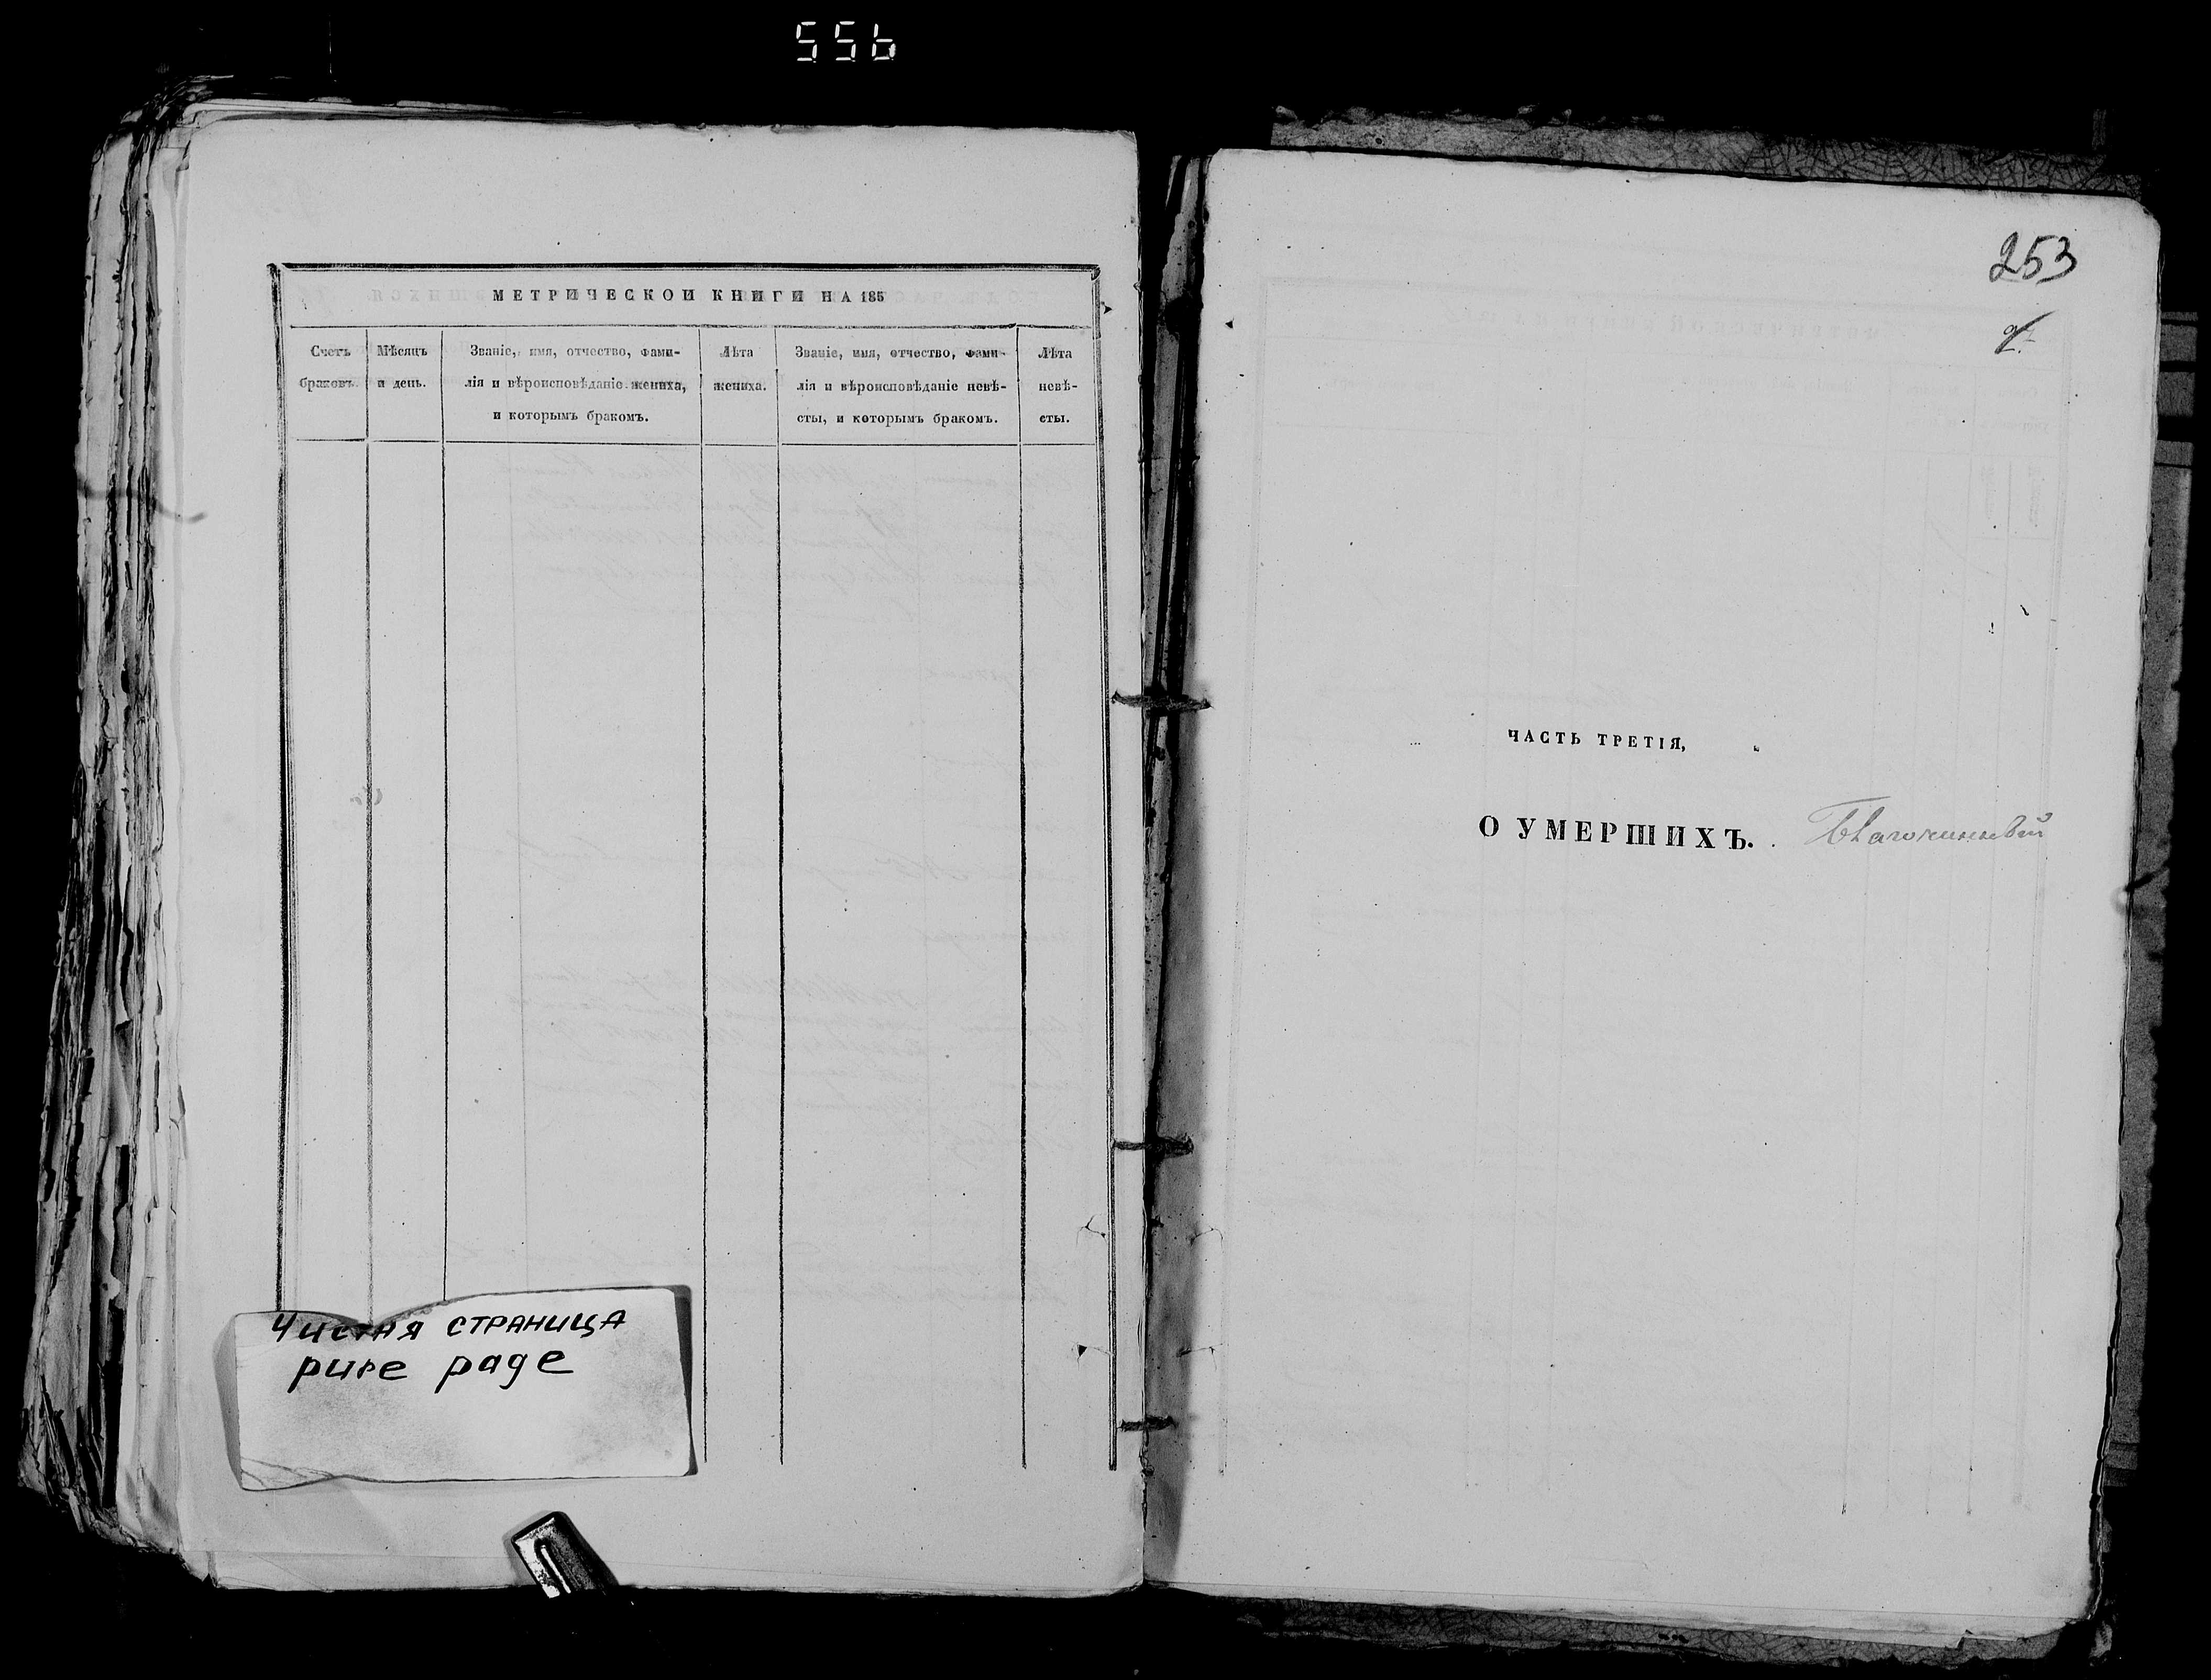 556
МЕТРИЧЕСКОЙ КНИГИ НА 185
Счетъ браковъ.
Мѣсяцъ и день.
Званіе, имя, отчество, фами-
лія и вѣроисповѣданіе жениха,
и которымъ бракомъ.
Лѣта
жениха.
Званіе, имя, отчество, фами-
лія и вѣроисповѣданіе невѣ-
сты, и которымъ бракомъ.
Лѣта
невѣ-
сты.
Чистая страница
pure page
253
ЧАСТЬ ТРЕТІЯ,
О УМЕРШИХЪ.